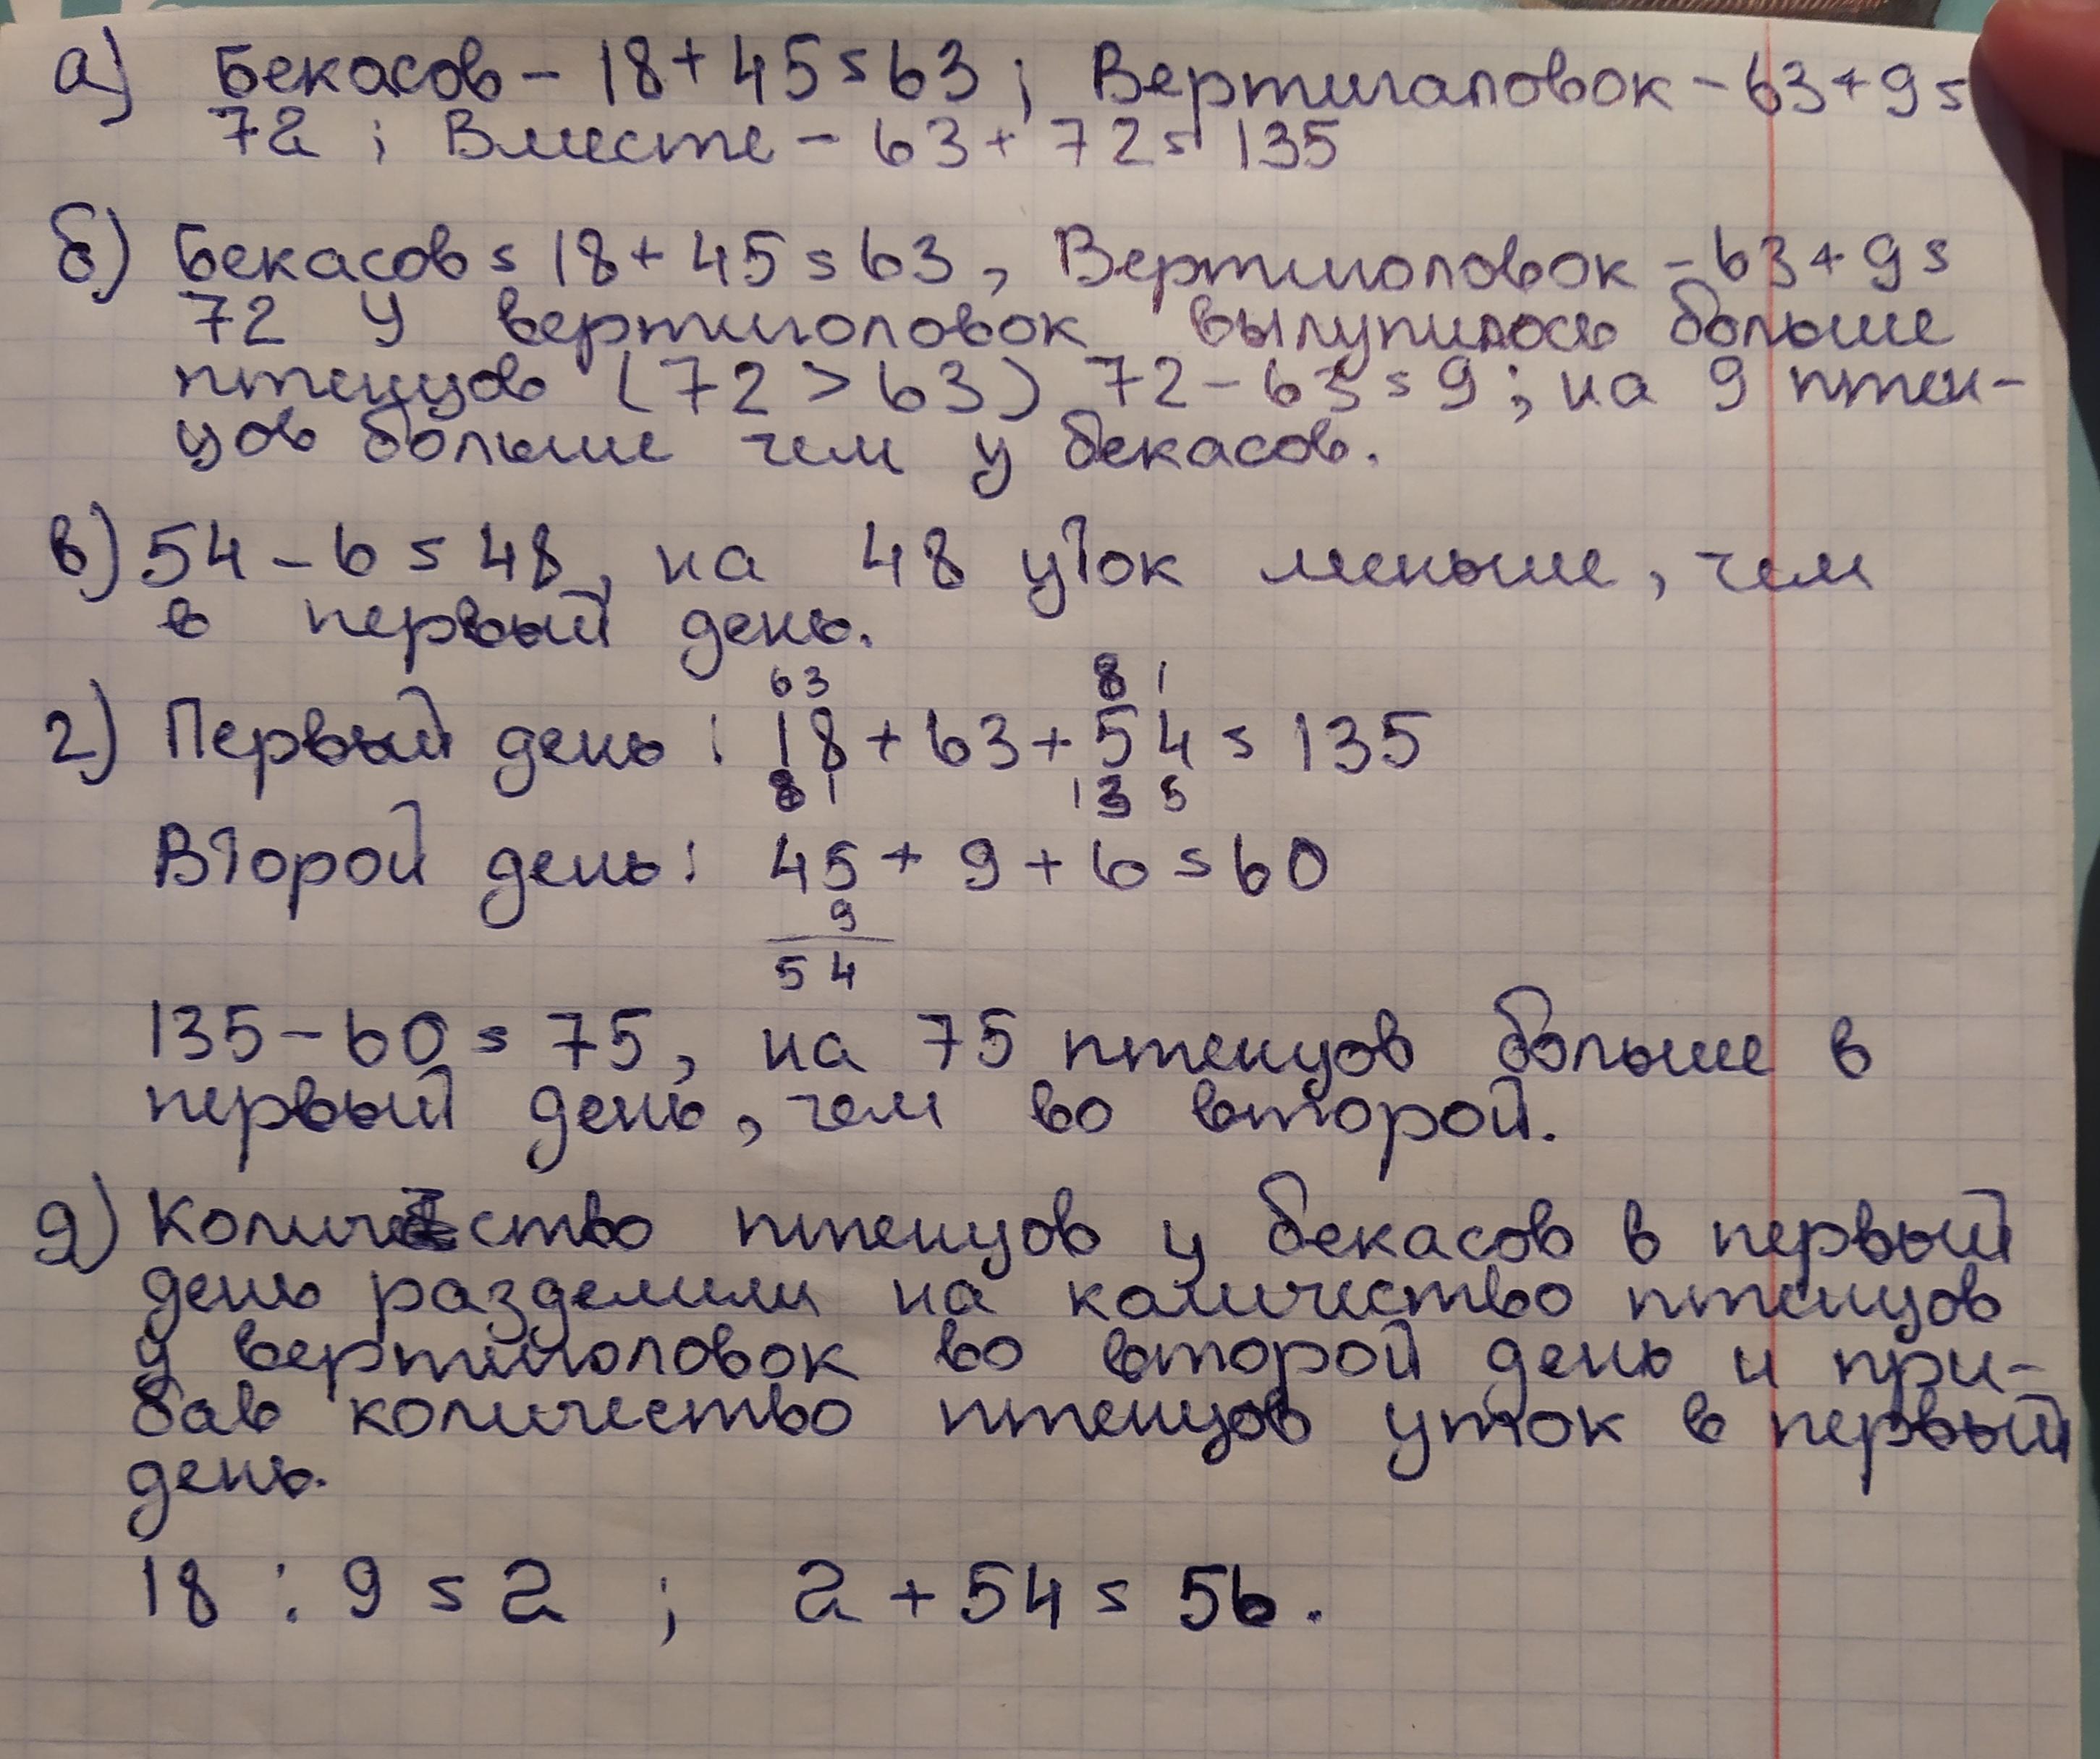 а) Бекасов - 18 + 45 = 63 ; Вертигаловок - 63 + 9 =
72 ; Вместе - 63 + 72 = 135
б) Бекасов = 18 + 45 = 63 , Вертиголовок - 63 + 9 =
72 У вертиголовок вылупилось больше
птенцов (72 > 63) 72 - 63 = 9 ; на 9 птен-
цов больше чем у бекасов.
в) 54 - 6 = 48 , на 48 уток меньше, чем
в первый день.
63 81
г) Первый день : 18 + 63 + 54 = 135
81 135
Второй день : 45 + 9 + 6 = 60
9
54
135 - 60 = 75 , на 75 птенцов больше в
первый день , чем во второй.
д) Количество птенцов у бекасов в первый
день разделили на количество птенцов
у вертиголовок во второй день и при-
бав количество птенцов уток в первый
день.
18 : 9 = 2 ; 2 + 54 = 56 .